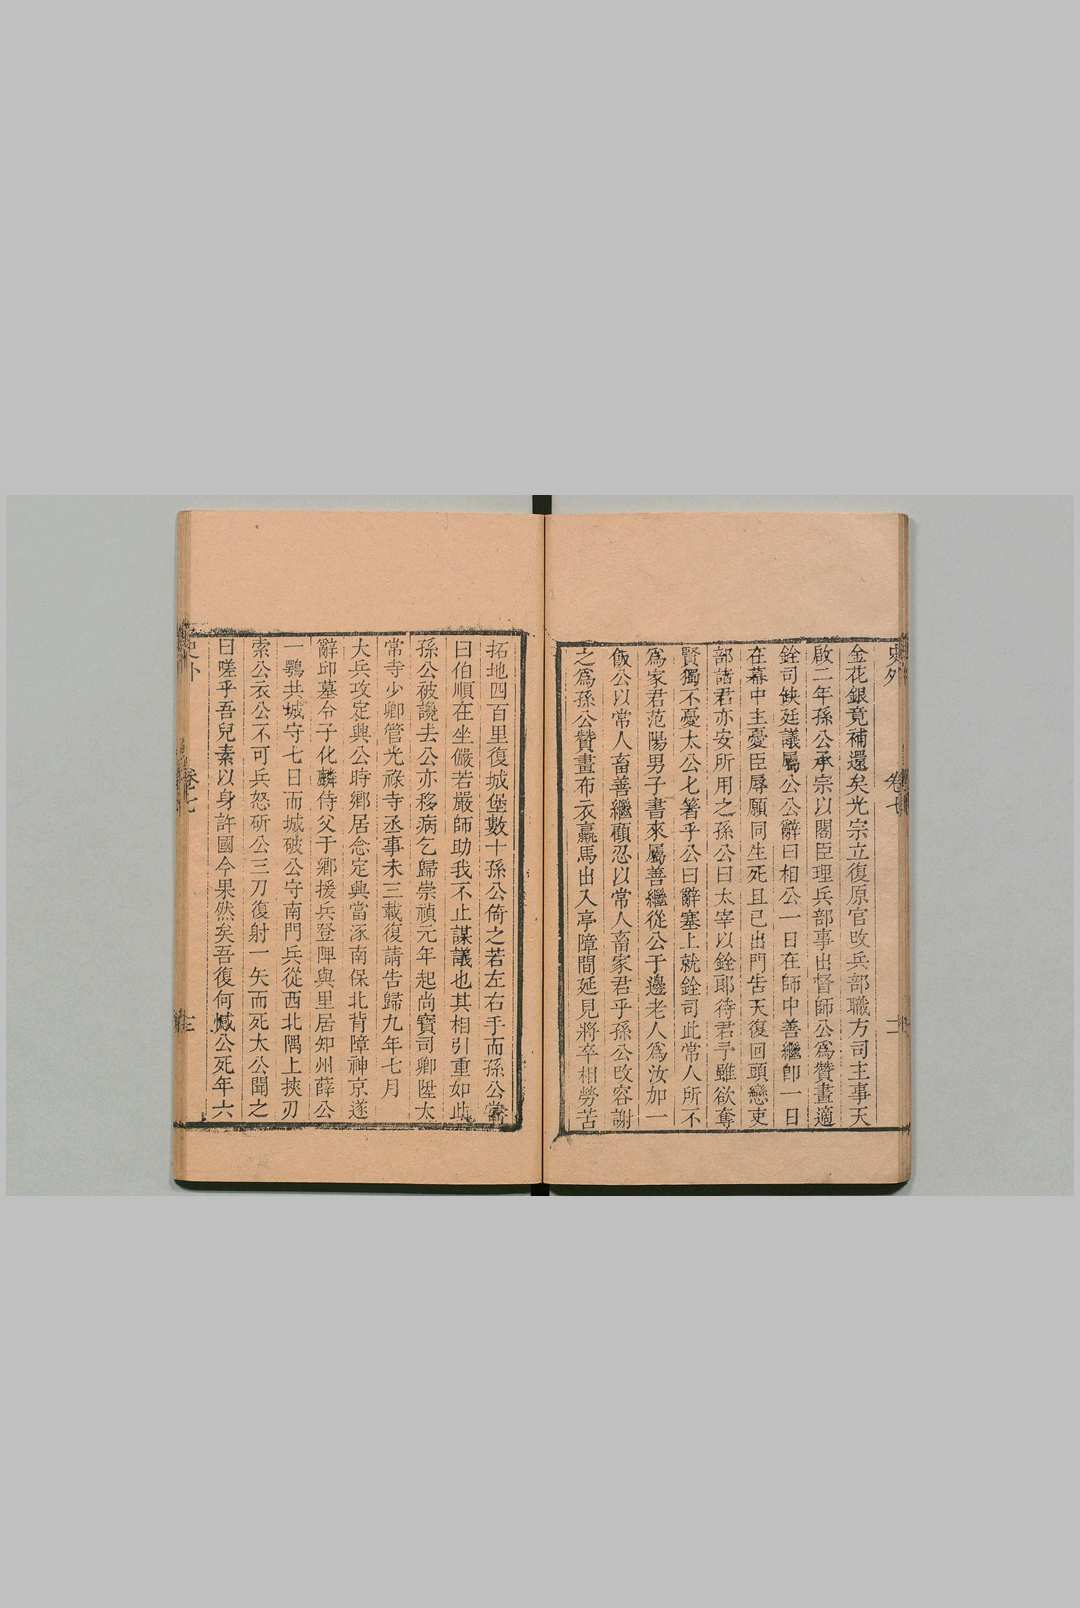 史外
卷七
二
金花銀竟補還矣光宗立復原官改兵部職方司主事天
啟二年孫公承宗以閣臣理兵部事出督師公爲贊畫適
銓司缺廷議屬公公辭曰相公一日在師中善繼卽一日
在幕中主憂臣辱願同生死且已出門告天復回頭戀吏
部諸君亦安所用之孫公曰太宰以銓郎待君予雖欲奪
賢獨不憂太公七箸乎公曰辭塞上就銓司此常人所不
爲家君范陽男子書來屬善繼從公于邊老人爲汝加一
飯公以常人畜善繼顧忍以常人畜家君乎孫公改容謝
之爲孫公贊畫布衣羸馬出入亭障間延見將卒相勞苦
拓地四百里復城堡數十孫公倚之若左右手而孫公嘗
曰伯順在坐儼若嚴師助我不止謀議也其相引重如此
孫公被讒去公亦移病乞歸崇禎元年起尚寶司卿陞太
常寺少卿管光祿寺丞事未三載復請告歸九年七月
大兵攻定興公時鄉居念定興當涿南保北背障神京遂
辭邱墓令子化麟侍父于鄉援兵登陴與里居知州薛公
一鶚共城守七日而城破公守南門兵從西北隅上挾刃
索公衣公不可兵怒斫公三刀復射一矢而死太公聞之
曰嗟乎吾兒素以身許國今果然矣吾復何憾公死年六
史外
卷七
三